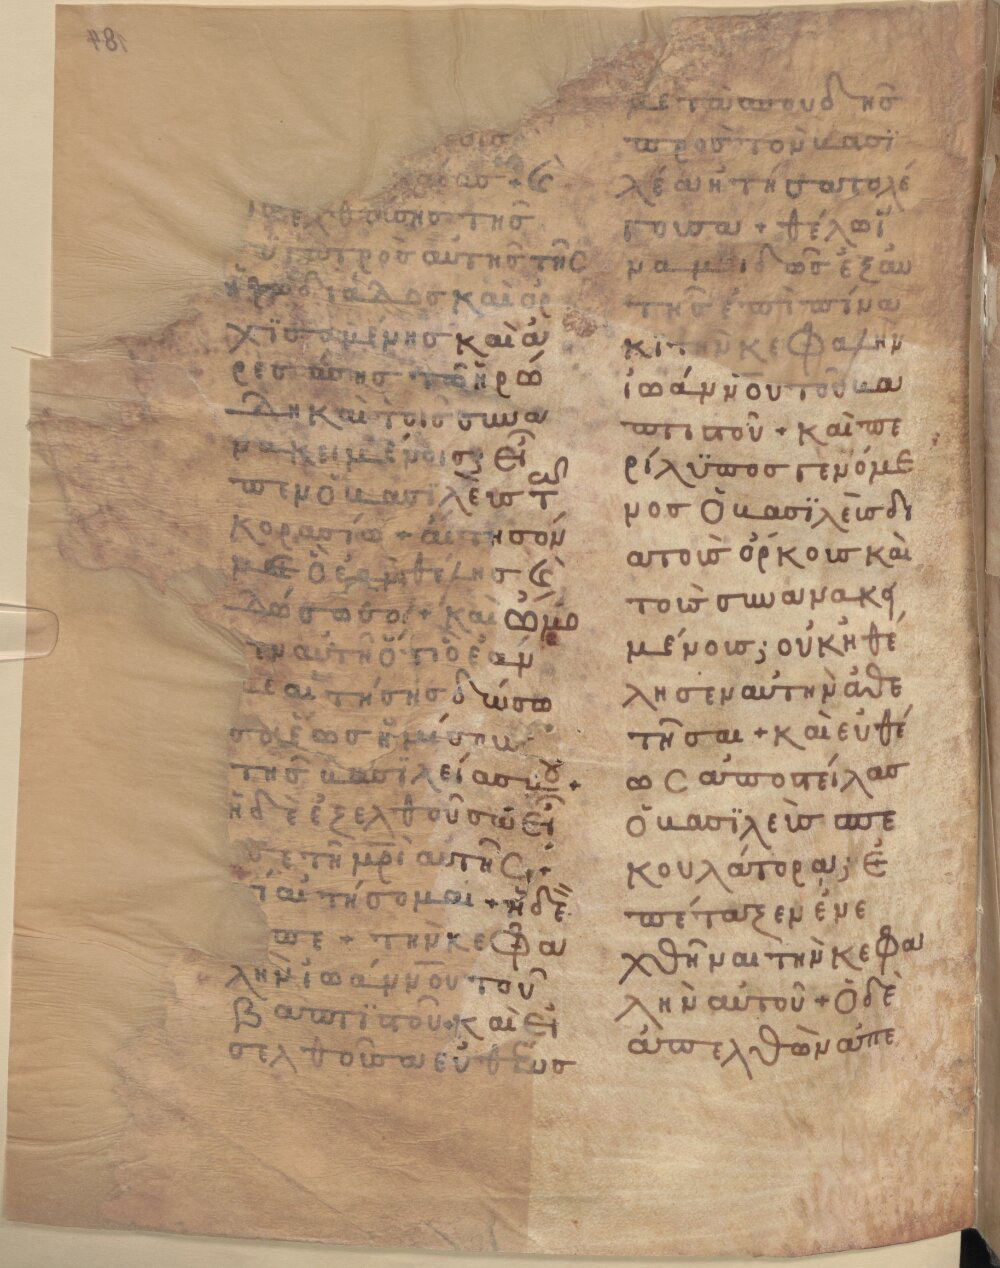 σελθούσης της
θυγατρὸς αὐτῆς τῆς
ἡρωδιάδος καὶ ὀρ
χϊσαμένης καὶ ἀ
ρεσάσης τῶ ἡρώ
δη καὶ τοῖς συνα
νακειμένοις, εἶ
πεν ὁ βασιλεὺς τ
κορασίω + αἴτησόν
με ὃ ἐὰν θέλης κ
δώσω σοι + καὶ ὤμο
σεν αὐτῆ ὅτι ὁ ἐὰν
με αιτήσης δώσω
σοι ἕως ἡμίσους
τῆς βασϊλείας μου +
ἡ δὲ ἐξελθοῦσα εἶ
πε τῆ μρὶ αὐτῆς +
τί αἰτήσομαι + ἡ δὲ εἶ
πε + τὴν κεφα
λὴν ἰωάννου τοῦ
βαπτϊστοῦ + καὶ εἰ
σελθοῦσα εὐθέως
μετὰ σπουδῆς
πρὸς τὸν βασϊ
λέα ἠτήσατο λέ
γουσα + θέλω ἵ
να μοι δῶς ἐξαυ
τῆς ἐπὶ πίνα
κι τὴν κεφαλὴν
ἰωάννου τοῦ βα
πτιστοῦ + καὶ πε
ρίλϋπος γενόμε
νος ὁ βασϊλεὺς δι
α τοὺς ὅρκους καὶ
τοὺς συνανακει
μένους; οὐκ ἠθέ
λησεν αὐτὴν ἀθε
τῆσαι + καὶ εὐθέ
ως ἀποστείλας
ὁ βασϊλεὺς σπε
κουλάτορα; ἐ
πέταξεν ἐνε
χθῆναι τὴν κεφα
λὴν αὐτοῦ + ὁ δὲ
ἀπελθὼν ἀπε